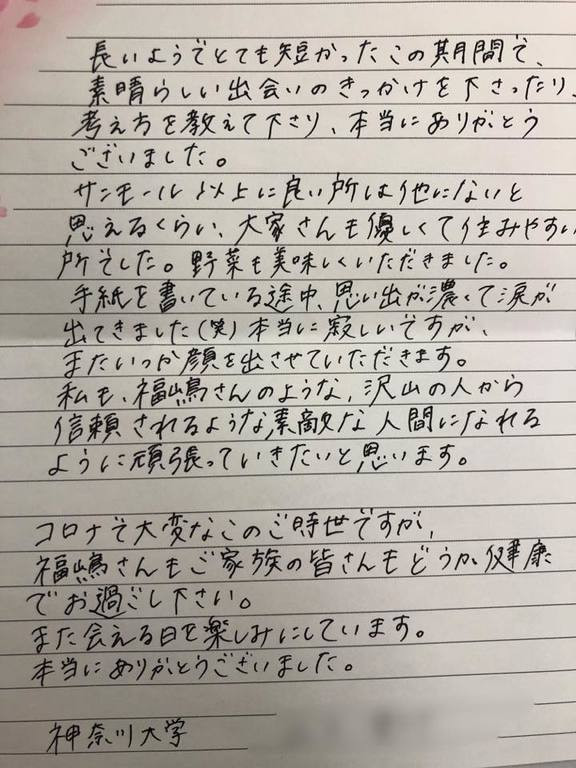 長いようでとても短かったこの期間で、
素晴らしい出会いのきっかけを下さったり、
考え方を教えて下さり、本当にありがとう
ございました。
サンモール以上に良い所は他にないと
思えるくらい、大家さんも優しくて住みやすい
所でした。野菜も美味しくいただきました。
手紙を書いている途中、思い出が濃くて涙が
出てきました(笑)本当に寂しいですが、
またいつか顔を出させていただきます。
私も、福嶋さんのような、沢山の人から
信頼されるような素敵な人間になれる
ように頑張っていきたいと思います。
コロナで大変なこのご時世ですが、
福嶋さんもご家族の皆さんもどうか健康
でお過ごし下さい。
また会える日を楽しみにしています。
本当にありがとうございました。
神奈川大学